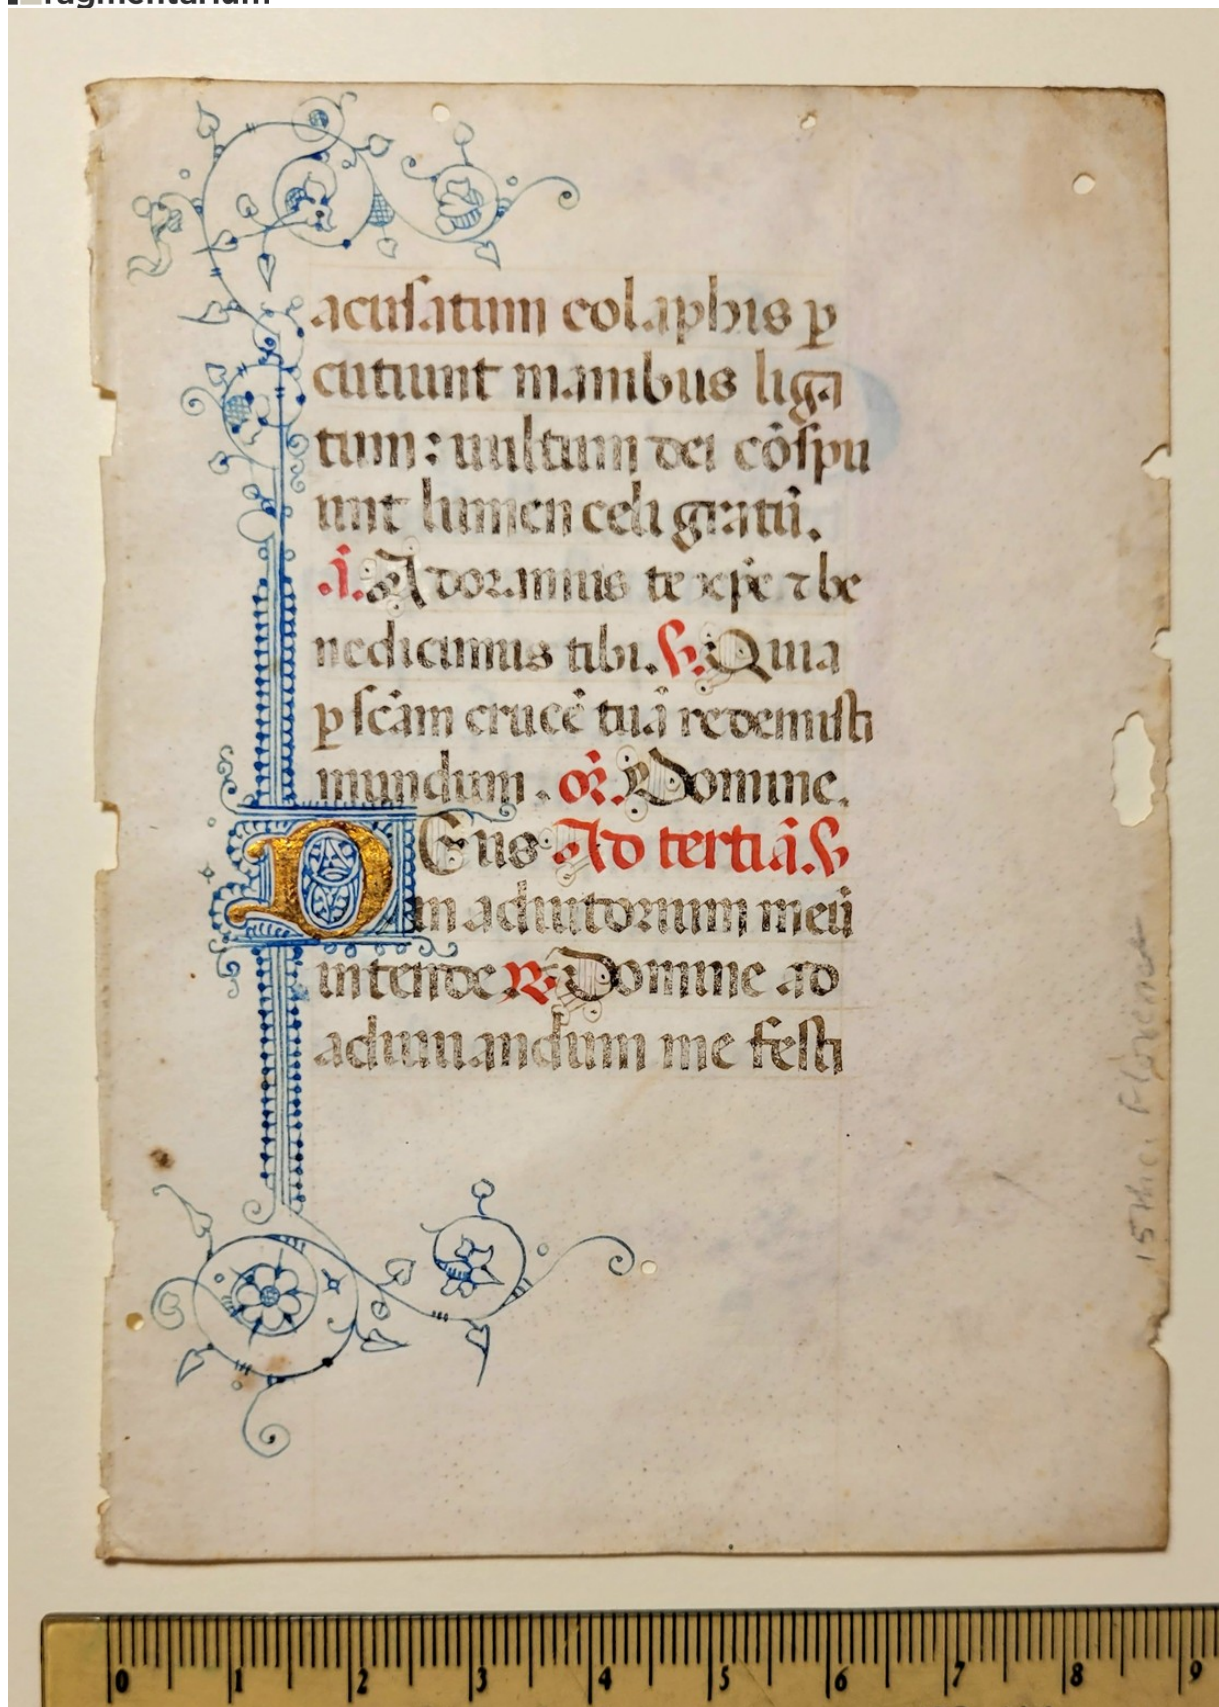 fragmentarium
acusatum colaphis p̲
cutiunt manibus liga
tum: uultum dei cōspu
unt lumen celi gratū.
.v̄. Adoramus te xp̄e ⁊ be
nedicimus tibi. ꝶ. Quia
ꝑ scām crucē tuā redemisti
mundum. or̄. Domine.
DEus Ad tertiā. ꝟ
in adiutorium meū
intende ꝶ Domine ad
adiuuandum me festi
15th c. Florence
0 1 2 3 4 5 6 7 8 9